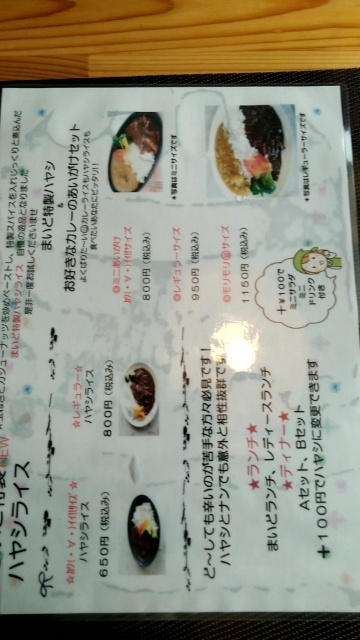 NEW
ハヤシライス
特製スパイスを入れじっくりと煮込んだ
まいど特製ハヤシライス 自慢の逸品となりました
是非一度お試しくださいませ
☆レギュラー☆
ハヤシライス
800円(税込み)
ハヤシライス
650円(税込み)
まいど特製ハヤシ
&
お好きなカレーのあいがけセット
800円(税込み)
*写真はミニサイズです
◎レギュラーサイズ
950円(税込み)
◎モリモリ◎サイズ
1150円(税込み)
*写真はレギュラーサイズです
ど~しても辛いのが苦手な方々必見です!
ハヤシとナンでも意外と相性抜群です
★ランチ★
まいどランチ、レディースランチ
★ディナー★
Aセット、Bセット
+100円でハヤシに変更できます
+¥100で
ミニサラダ
ミニ
ドリンク
付き